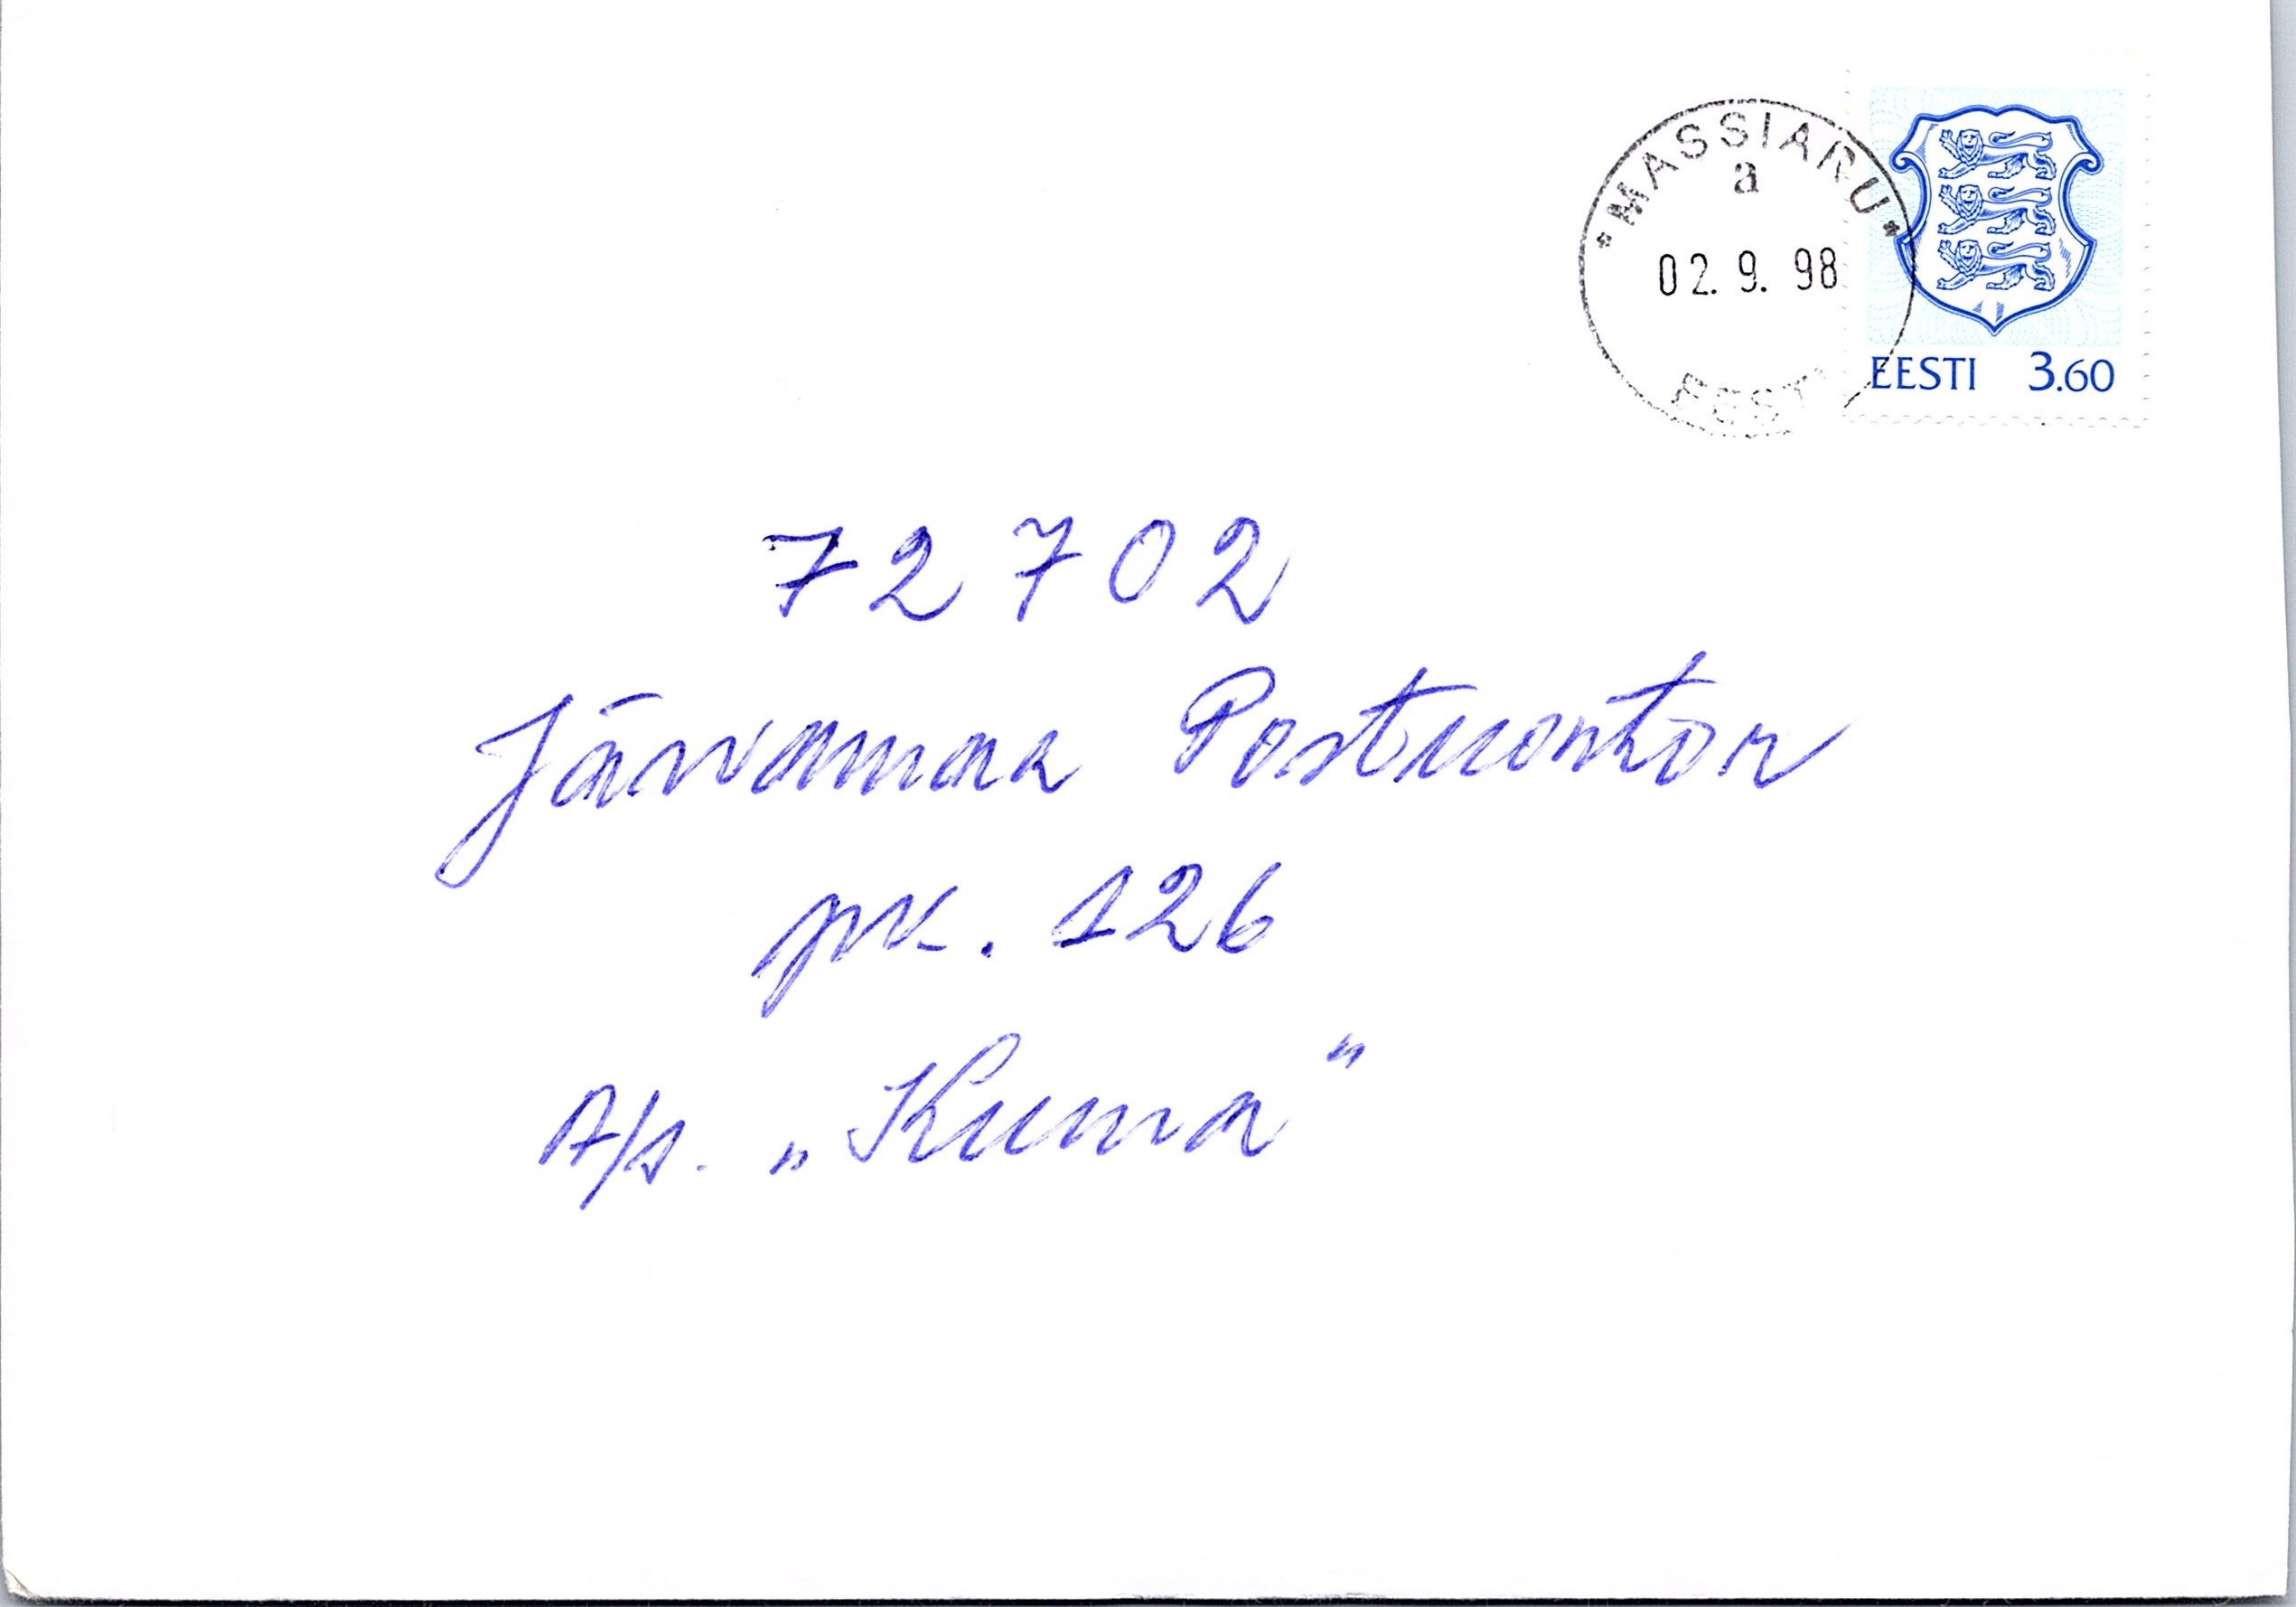 *MASSIARU*
a
02. 9. 98
EESTI
EESTI 3.60
72702
Järvamaa Postkontor
pk. 126
A/s. „Kuma”